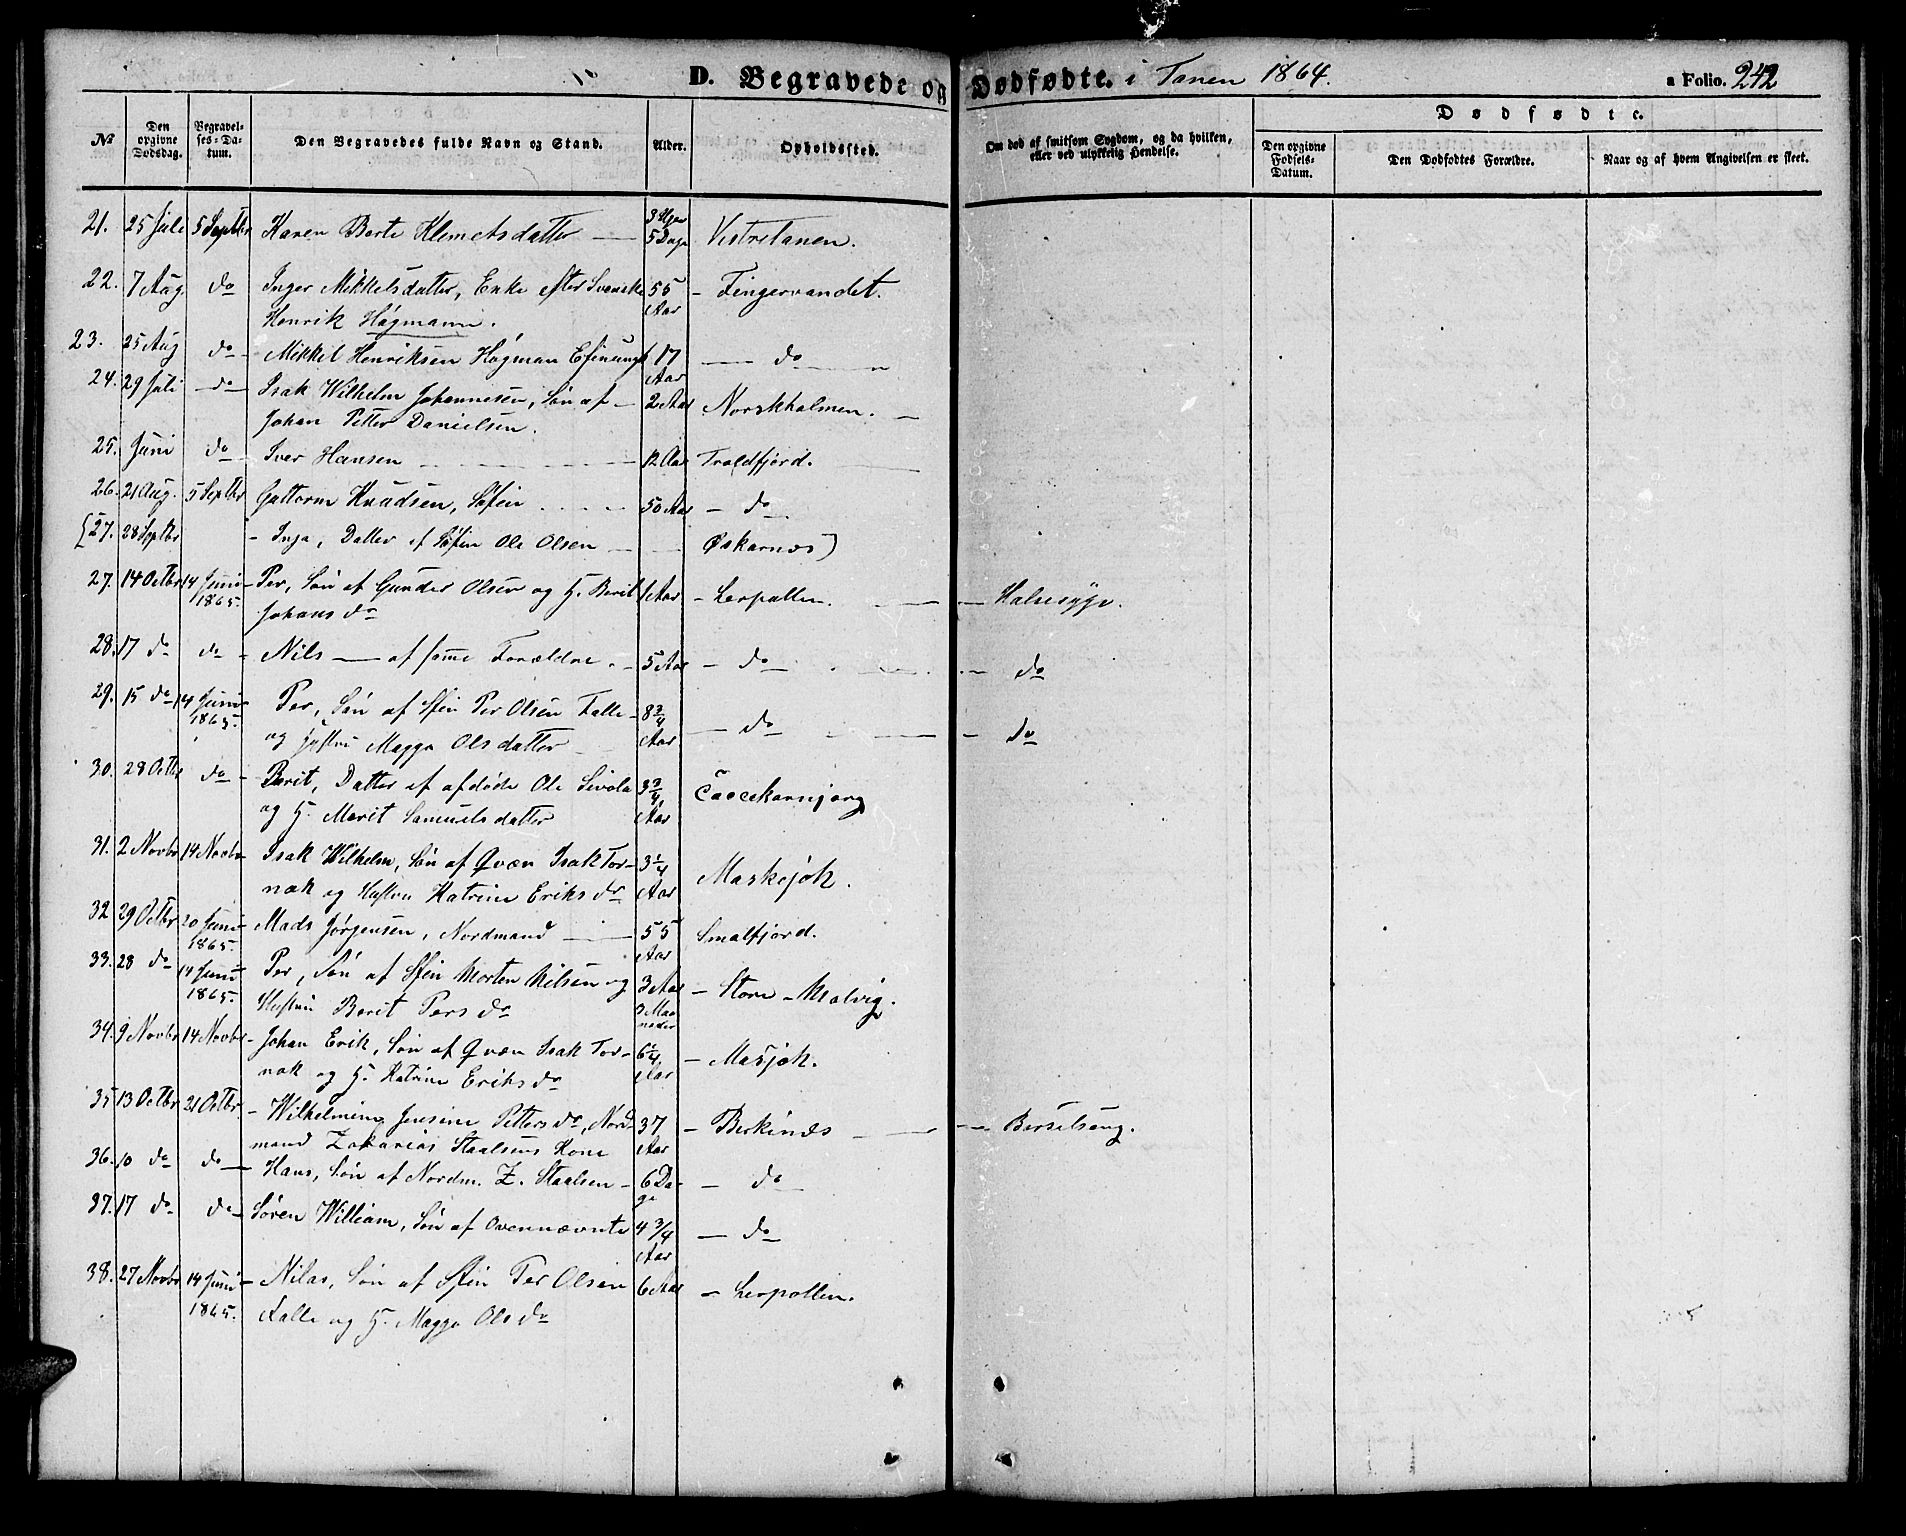 D. Begravede og Dødfødte. i Tanen 1864. a Folio. 242
№ Den opgivne Dødsdag. Begravelses-Datum. Den Begravedes fulde Navn og Stand. Alder. Opholdssted. Om død af smitsom Sygdom, og da hvilken, eller ved ulykkelig Hendelse. Dødfødte.
Den opgivne Fødsels-Datum. Den Dødfødtes Forældre. Naar og af hvem Angivelsen er skeet.
21. 25 Juli 5 Septbr Karen Berte Klemetsdatter 3 Uger 5 Dage Vestretanen.
22. 7 Aug. do Inger Mikkelsdatter, Enke efter Svenske 55 Aar - Fingervandet.
Henrik Högmann.
23. 25 Aug do - Mikkel Henriksen Högman 17 Aar do
24. 29 Juli do Isak Wilhelm Johannesen, Søn af 2 Aar Norskholmen.
Johan Petter Danielsen.
25. Juni do Iver Hansen 12 Aar Troldfjord.
26. 21 Aug. 5 Septbr Guttorm Knudsen, Søfin 50 Aar - do
(27. 28 Septbr - Inga, Datter af Søfin Ole Olsen Øskarnæs)
27. 14 Octbr 14 Juni 1865. Per, Søn af Gunder Olsen og H. Berit 1 Aar - Lerpollen. Halsesyge.
Johans do
28. 17 do do - Nils af samme Forældre. 5 Aar - do do
29. 15 do 14 Juni 1865. Per, Søn af Sfin Per Olsen Falle 8 3/4 Aar - do do
og Hustru Magga Olsdatter
30. 28 Octbr do - Berit, Datter af afdøde Ole Sivola 3 3/4 Aar Čaccekarnjarg
og H. Marit Samuelsdatter
31. 2 Novbr 14 Novbr Isak Wilhelm, Søn af Qvæn Isak Tor- 3 1/4 Aar Maskejok.
nak og Hustru Katrine Eriks do
32 29 Octbr 20 Juni 1865. Mads Jørgensen, Nordmand 55 Aar Smalfjord.
33. 28 do 14 Juni 1865. Per, Søn af Sfin Morten Nilsen og 3 Aar 3 Maaneder - Store-Molvig.
Hustru Berit Pers do
34. 9 Novbr 14 Novbr - Johan Erik, Søn af Qvæn Isak Tor- 6 1/4 Aar - Masjok.
nak og H. Katrine Eriks do
35 13 Octbr 21 Octbr - Wilhelmine Jensine Petters do, Nord- 37 Aar - Birkenæs Barselseng.
mand Zakarias Staalsens Kone
36. 10 do do Hans, Søn af Nordm. Z. Staalsen 6 Dage - do
37. 17 do do Søren William, Søn af Ovennævnte 4 3/4 Aar - do
38. 27 Novbr 14 Juni 1865. - Nilas, Søn af Sfin Per Olsen 6 Aar - Lerpollen.
Falle og H. Magga Ols do